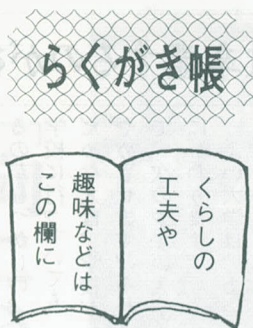 らくがき帳
くらしの
工夫や
趣味などは
この欄に